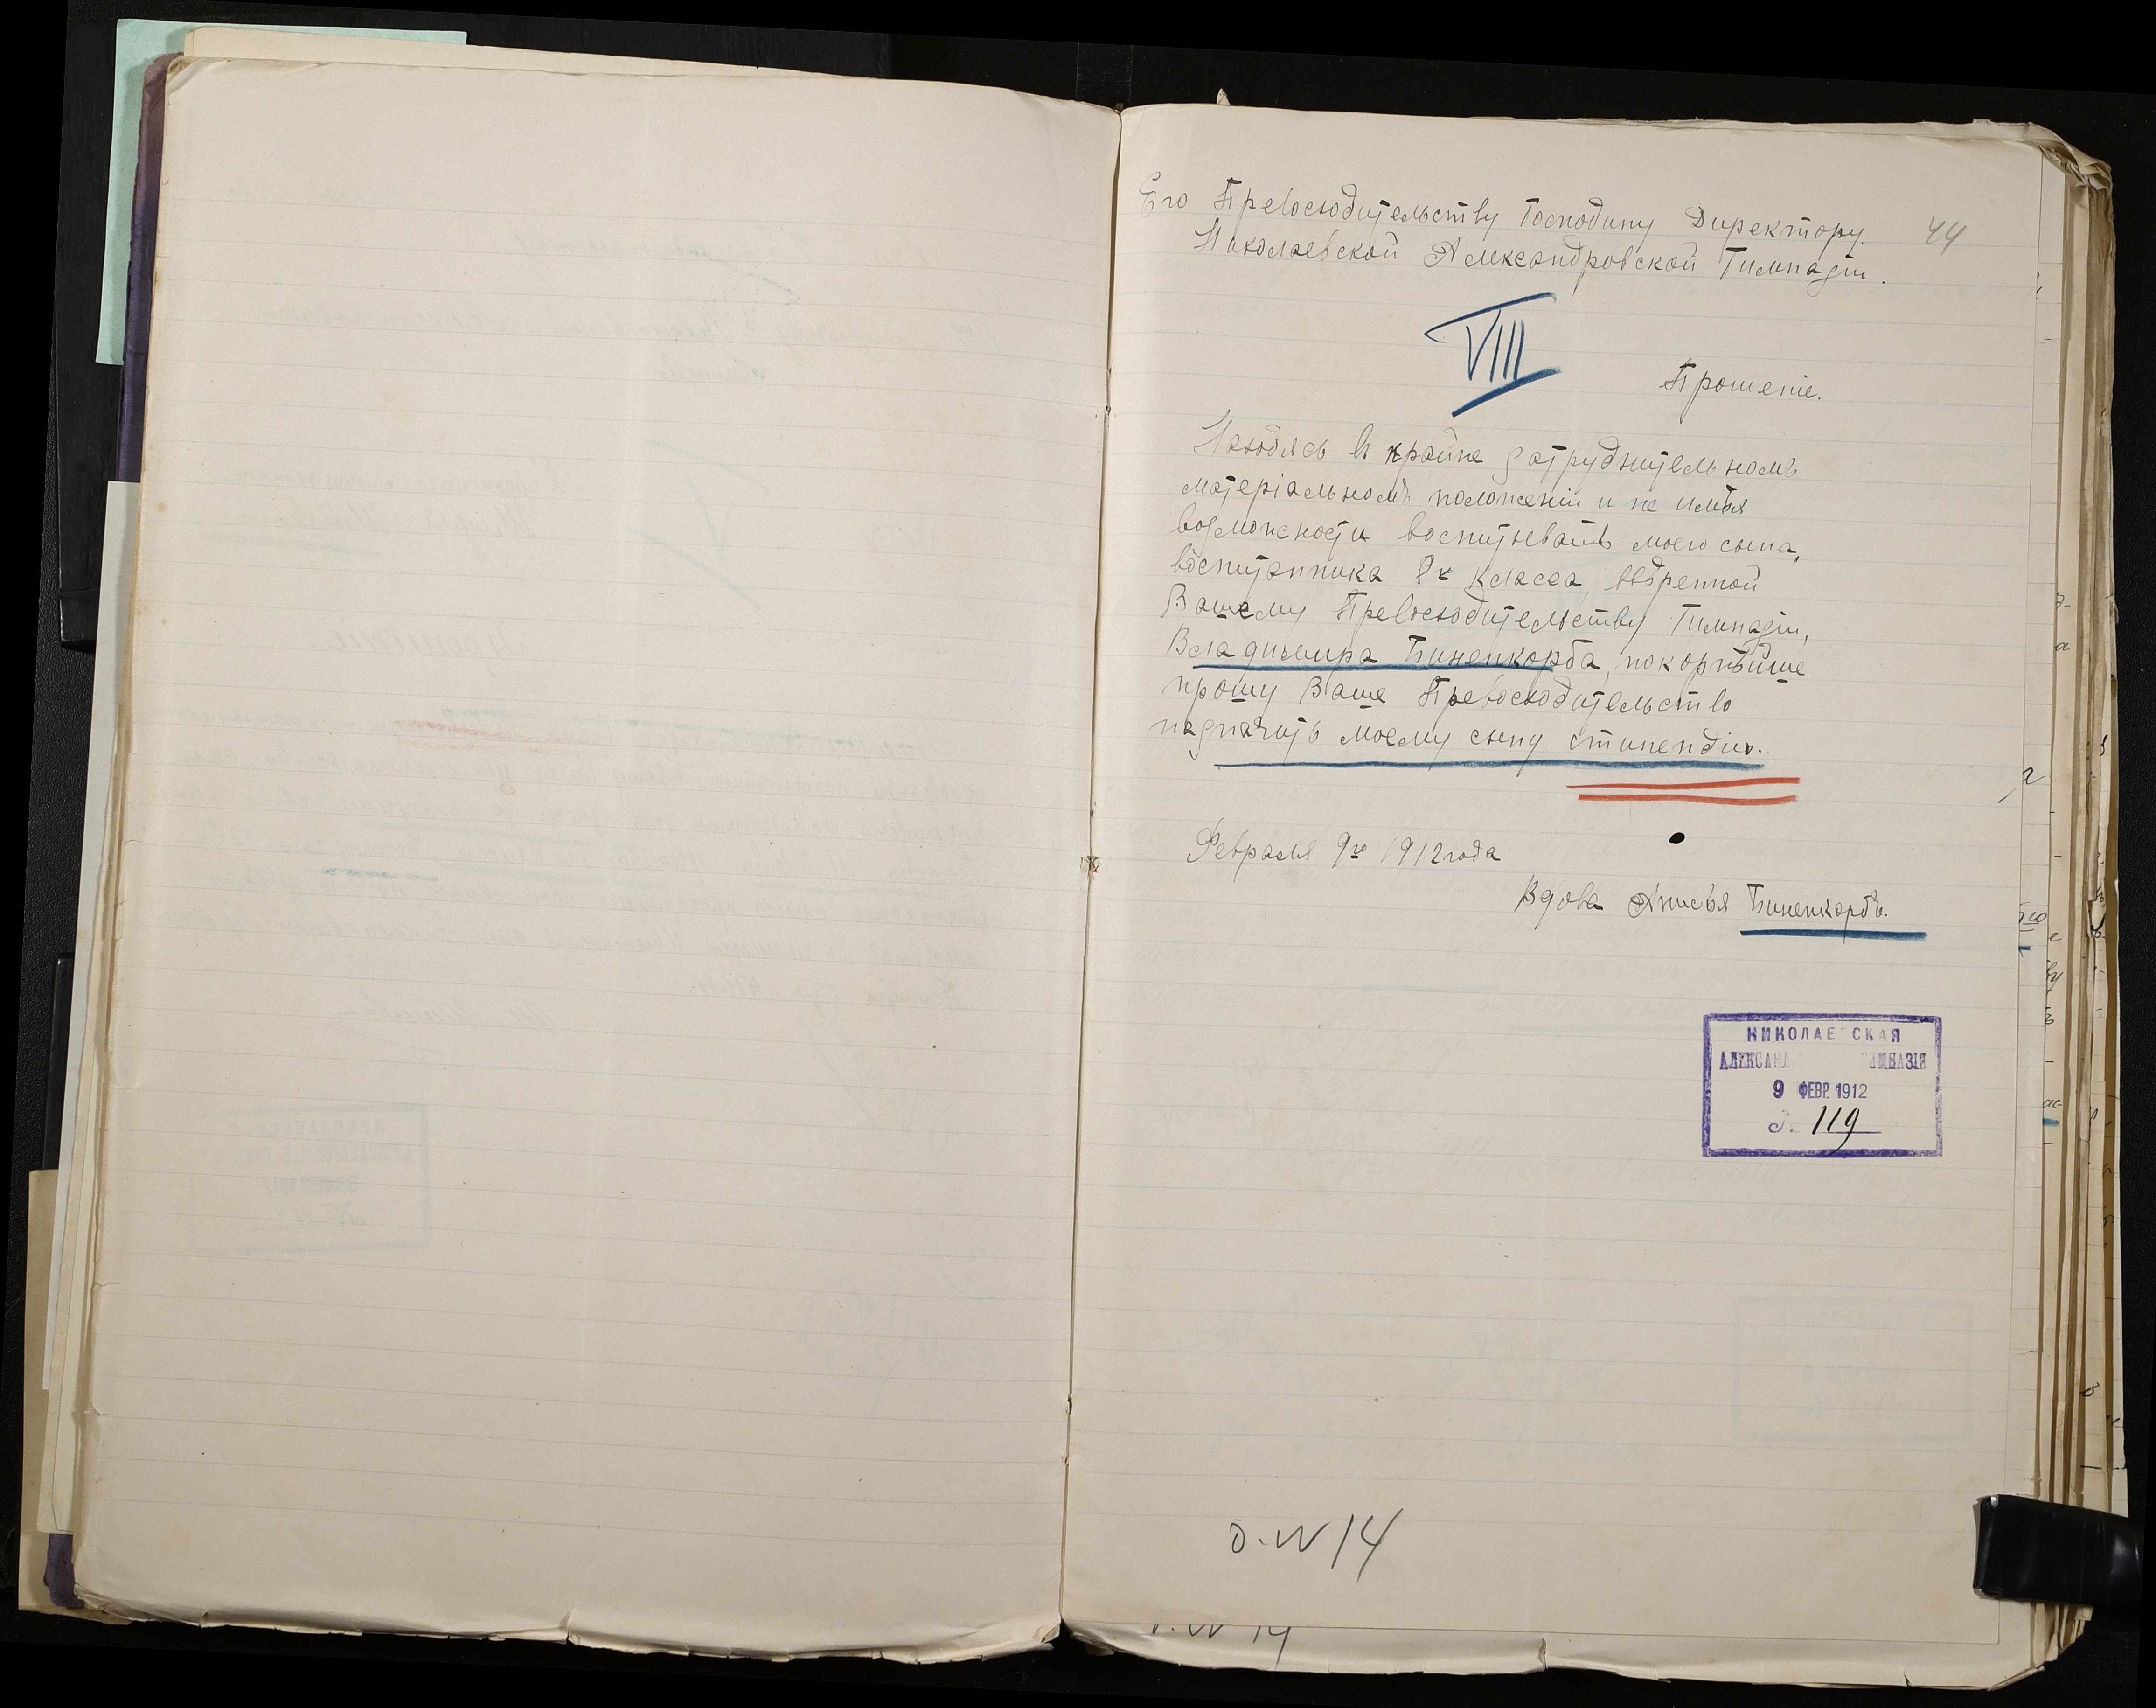 Его Превосходительству Господину Директору
44
Николаевской Александровской Гимназіи.
VIII
Прошеніе.
Находясь въ крайне затруднительномъ
матеріальномъ положеніи и не имѣя
возможности воспитывать моего сына,
воспитанника 8го класса, ввѣренной
Вашему Превосходительству Гимназіи,
Владиміра Биненкорба, покорнѣйше
прошу Ваше Превосходительство
назначить моему сыну стипендію.
Февраля 9го 1912 года
Вдова Анисья Биненкорбъ.
НИКОЛАЕ СКАЯ
АЛЕКСАНД ГИМНАЗІЯ
9 ФЕВР. 1912
119
О. N 14